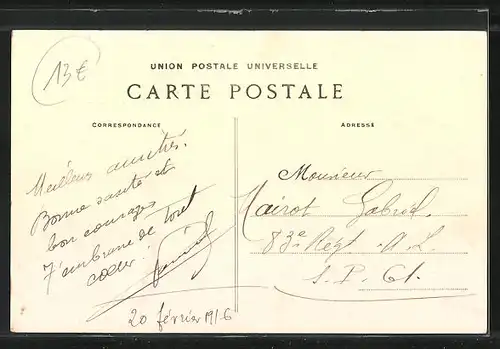 13€
UNION POSTALE UNIVERSELLE
CARTE POSTALE
CORRESPONDANCE
ADRESSE
Meilleurs amitiés.
Bonne santé et
bon courages
J'embrasse de Tout
coeur.
20 février 1916
Monsieur
Mairot Gabriel.
83e Régt. A. L.
S. P. 61.